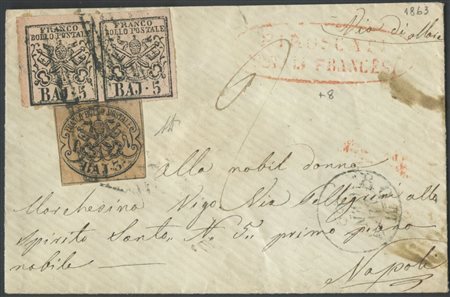 1863
Via di Mare
FRANCO
BOLLO POSTALE
BAJ. 5
FRANCO
BOLLO POSTALE
BAJ. 5
PIROSCAFI
POSTALI FRANCESI
+8
BAJ. 3
alla nobil donna
Marchesina Vigo Via Pellegrini allo
Spirito Santo N. 5 primo piano
nobile
Napoli